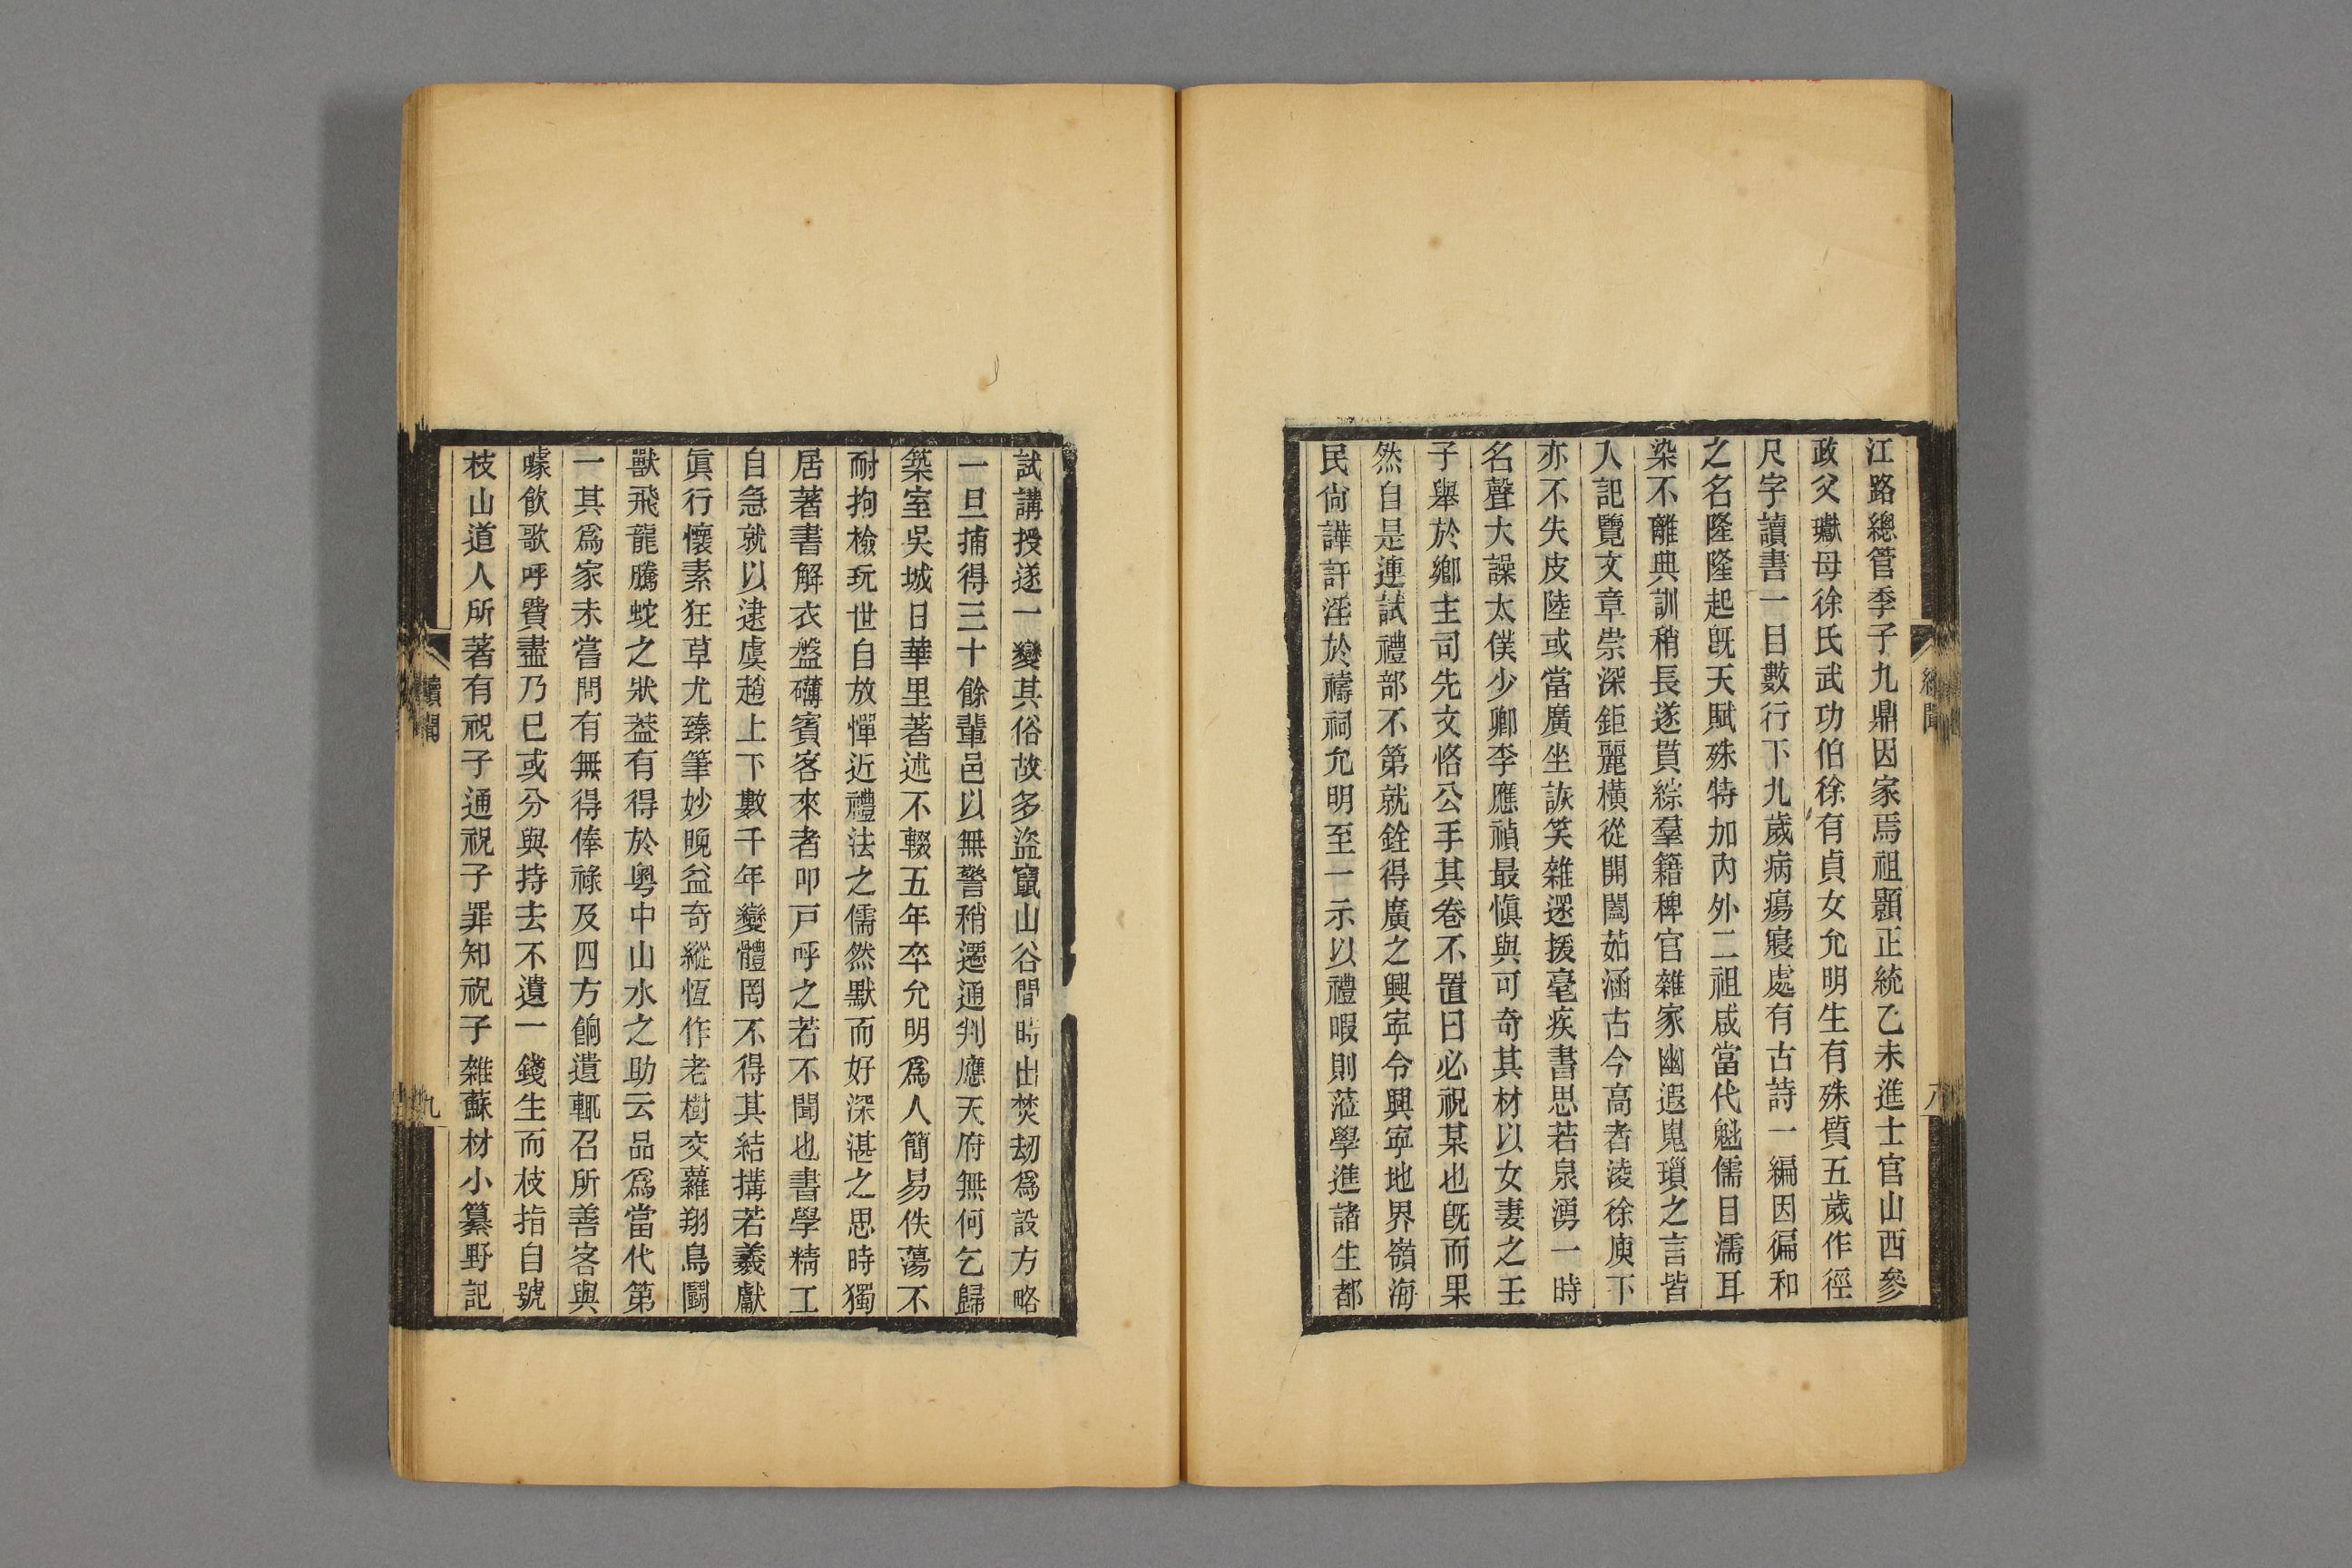 江路總管季子九鼎因家焉祖顥正統乙未進士官山西參
政父瓛母徐氏武功伯徐有貞女允明生有殊質五歲作徑
尺字讀書一目數行下九歲病瘍寢處有古詩一編因徧和
之名隆隆起旣天賦殊特加內外二祖咸當代魁儒目濡耳
染不離典訓稍長遂貫綜羣籍稗官雜家幽遐嵬瑣之言皆
入記覽文章崇深鉅麗橫從開闔茹涵古今高者淩徐庾下
亦不失皮陸或當廣坐詼笑雜遝援毫疾書思若泉湧一時
名聲大譟太僕少卿李應禎最愼與可奇其材以女妻之壬
子舉於鄉主司先文恪公手其卷不置曰必祝某也旣而果
然自是連試禮部不第就銓得廣之興寧令興寧地界嶺海
民尙譁訐淫於禱祠允明至一示以禮暇則蒞學進諸生都
續聞
八
試講授遂一變其俗故多盜竄山谷間時出焚劫爲設方略
一旦捕得三十餘輩邑以無警稍遷通判應天府無何乞歸
築室吳城日華里著述不輟五年卒允明爲人簡易佚蕩不
耐拘檢玩世自放憚近禮法之儒然默而好深湛之思時獨
居著書解衣盤礴賓客來者叩戸呼之若不聞也書學精工
自急就以逮虞趙上下數千年變體罔不得其結搆若羲獻
眞行懷素狂草尤臻筆妙晚益奇縱恆作老樹交蘿翔鳥鬭
獸飛龍騰蛇之狀葢有得於粵中山水之助云品爲當代第
一其爲家未嘗問有無得俸祿及四方餉遺輒召所善客與
噱飲歌呼費盡乃已或分與持去不遺一錢生而枝指自號
枝山道人所著有祝子通祝子罪知祝子雜蘇材小纂野記
續聞
九